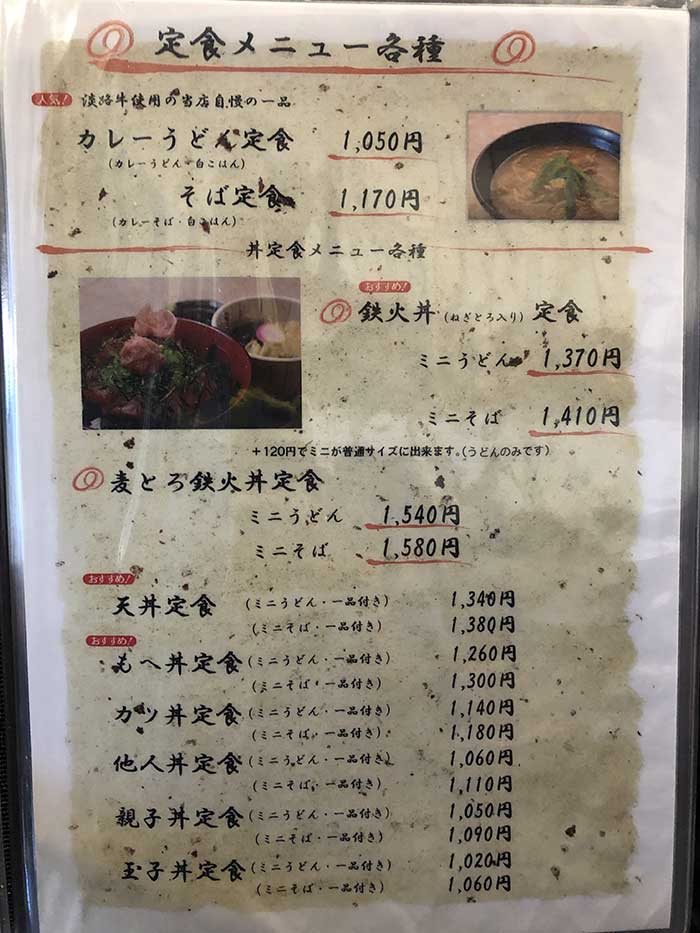 定食メニュー各種
人気! 淡路牛使用の当店自慢の一品
カレーうどん定食 1,050円
(カレーうどん・白ごはん)
そば定食 1,170円
(カレーそば・白ごはん)
丼定食メニュー各種
おすすめ!
鉄火丼(ねぎとろ入り)定食
ミニうどん 1,370円
ミニそば 1,410円
+120円でミニが普通サイズに出来ます。(うどんのみです)
麦とろ鉄火丼定食
ミニうどん 1,540円
ミニそば 1,580円
おすすめ!
天丼定食 (ミニうどん・一品付き) 1,340円
(ミニそば・一品付き) 1,380円
おすすめ!
もへ丼定食 (ミニうどん・一品付き) 1,260円
(ミニそば・一品付き) 1,300円
カツ丼定食 (ミニうどん・一品付き) 1,140円
(ミニそば・一品付き) 1,180円
他人丼定食 (ミニうどん・一品付き) 1,060円
(ミニそば・一品付き) 1,110円
親子丼定食 (ミニうどん・一品付き) 1,050円
(ミニそば・一品付き) 1,090円
玉子丼定食 (ミニうどん・一品付き) 1,020円
(ミニそば・一品付き) 1,060円